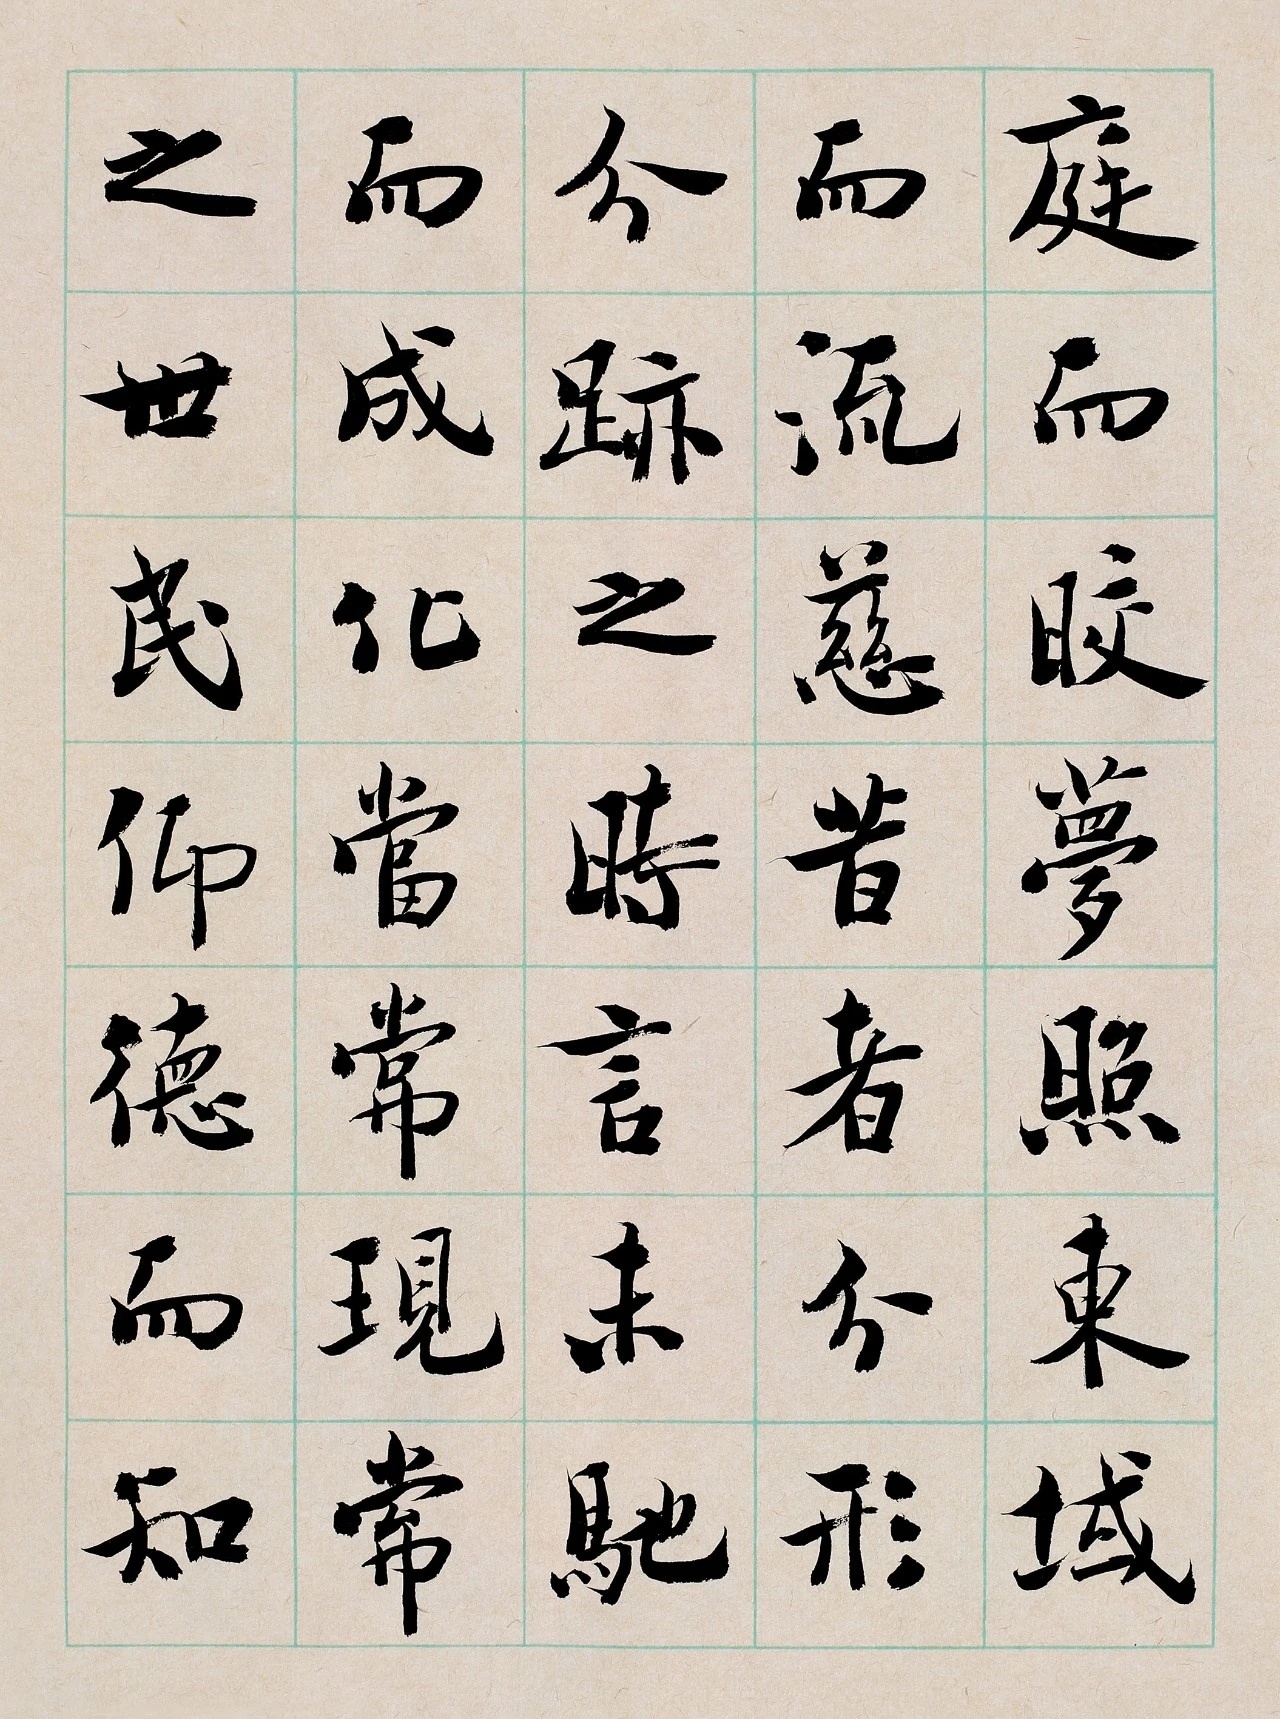 庭而皎夢照東域
而流慈昔者分形
分跡之時言未馳
而成化當常現常
之世民仰德而知